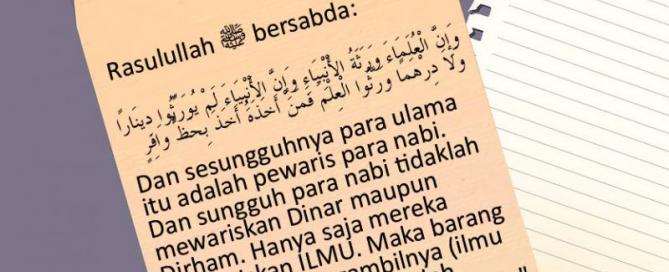 Rasulullah ﷺ bersabda:
وَإِنَّ الْعُلَمَاءَ وَرَثَةُ الْأَنْبِيَاءِ وَإِنَّ الْأَنْبِيَاءَ لَمْ يُوَرِّثُوا دِينَارًا
وَلَا دِرْهَمًا وَرَّثُوا الْعِلْمَ فَمَنْ أَخَذَهُ أَخَذَ بِحَظٍّ وَافِرٍ
Dan sesungguhnya para ulama
itu adalah pewaris para nabi.
Dan sungguh para nabi tidaklah
mewariskan Dinar maupun
Dirham. Hanya saja mereka
ILMU. Maka barang
(ilmu